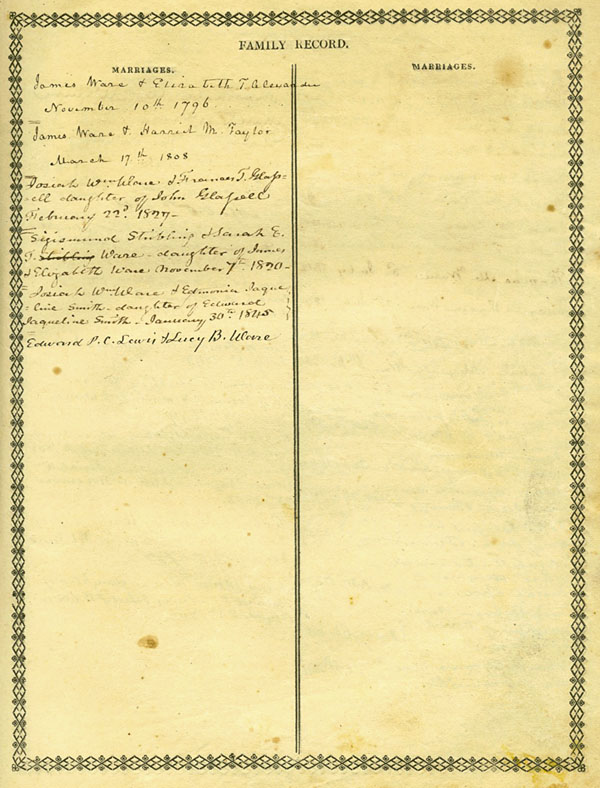 FAMILY RECORD.
MARRIAGES.
James Ware & Elizabeth T Alexander
November 10th 1796
James Ware & Harriet M. Taylor
March 17th 1808
Josiah Wm Ware & Frances T. Glass-
ell daughter of John Glassell
February 22d 1827-
Sigismund Stribling & Sarah E.
T. Stribling Ware - daughter of James
& Elizabeth Ware November 7th 1820-
Josiah Wm Ware & Edmonia Jaque
line Smith - daughter of Edward
Jaqueline Smith - January 30th 1845
Edward P. C. Lewis & Lucy B. Ware
MARRIAGES.